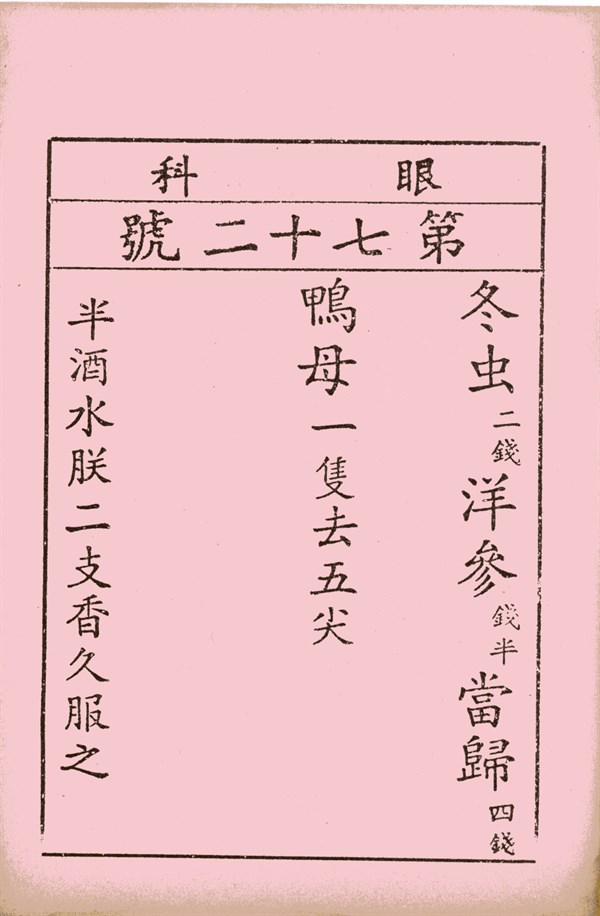 眼科
第七十二號
冬虫二錢洋參錢半當歸四錢
鴨母一隻去五尖
半酒水朕二支香久服之